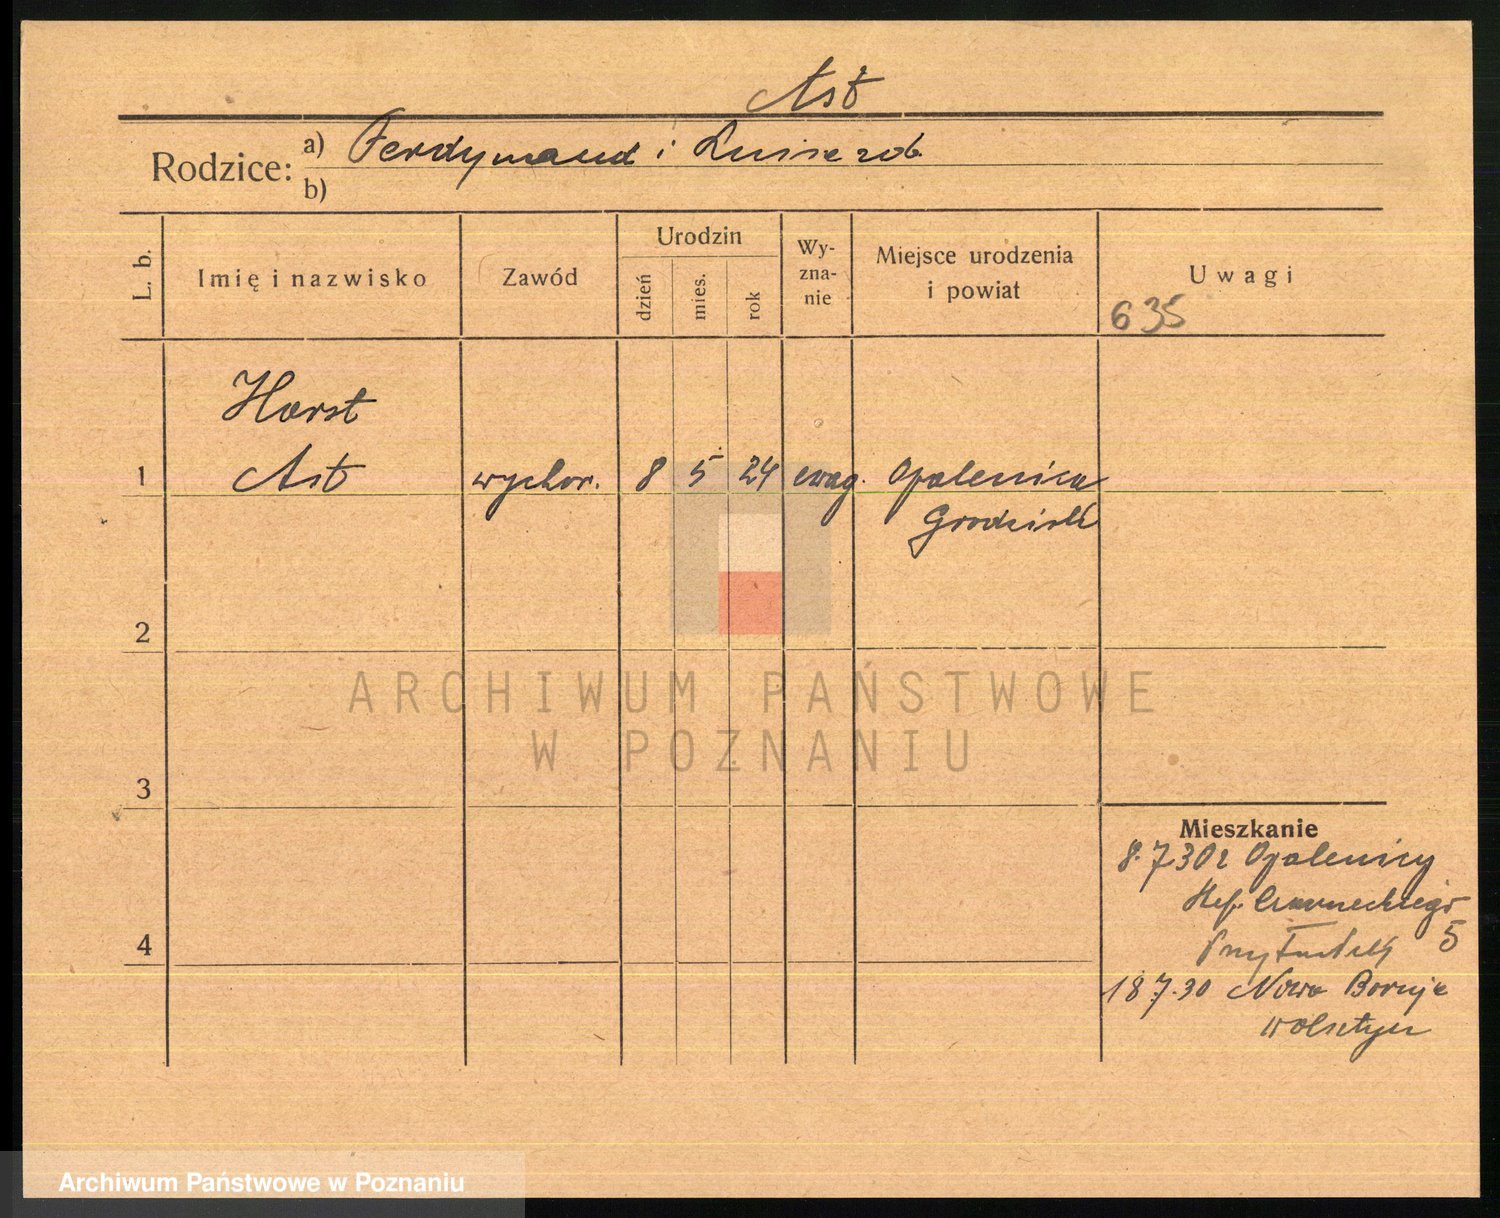 Ast
Rodzice: a) Ferdynand i Luise zob.
b)
L. b.
Imię i nazwisko
Zawód
Urodzin
dzień
mies.
rok
Wy-
zna-
nie
Miejsce urodzenia
i powiat
Uwagi
635
Horst
1 Ast wychow. 8 5 24 ewag. Opalenica
Grodzisk
2
3
4
Mieszkanie
8.7.30 z Opalenicy
Czarneckiego
5
18.7.30 Nowe Boruje
Wolsztyn
ARCHIWUM PAŃSTWOWE
W POZNANIU
Archiwum Państwowe w Poznaniu